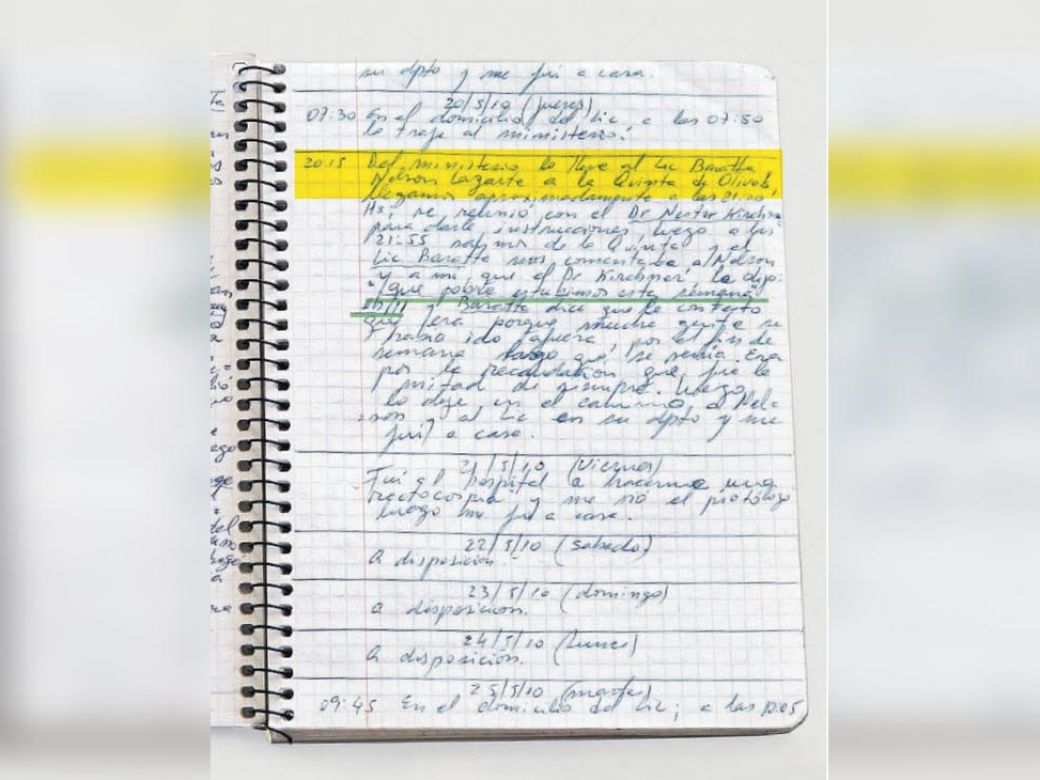 su dpto y me fui a casa.
20/5/10 (jueves)
07:30 En el domicilio del Lic a las 07:50
lo traje al ministerio.
20:15 Del ministerio lo lleve al Lic Baratta
Nelson Lazarte a la Quinta de Olivos
llegamos aproximadamente a las 21:00
Hs, se reunió con el Dr Nestor Kirchner
para darle instrucciones, luego a las
21:55 salimos de la Quinta y el
Lic Baratta nos comentaba a Nelson
y a mi, que el Dr Kirchner le dijo:
"que pobre estubimos esta semana"
y Baratta dice que le contesto
que era porque mucha gente se
habia ido afuera, por el fin de
semana largo que se venia. Era
por la recaudación que fue la
mitad de siempre. Luego
lo deje en el camino a Nel-
son y al Lic en su dpto y me
fui a casa.
21/5/10 (Viernes)
Fui al hospital a hacerme una
rectocospia y me vió el proctólogo
luego me fui a casa.
22/5/10 (sabado)
A disposicion.
23/5/10 (domingo)
a disposicion.
24/5/10 (Lunes)
A disposición.
25/5/10 (martes)
09:45 En el domicilio del Lic; a las 10:05